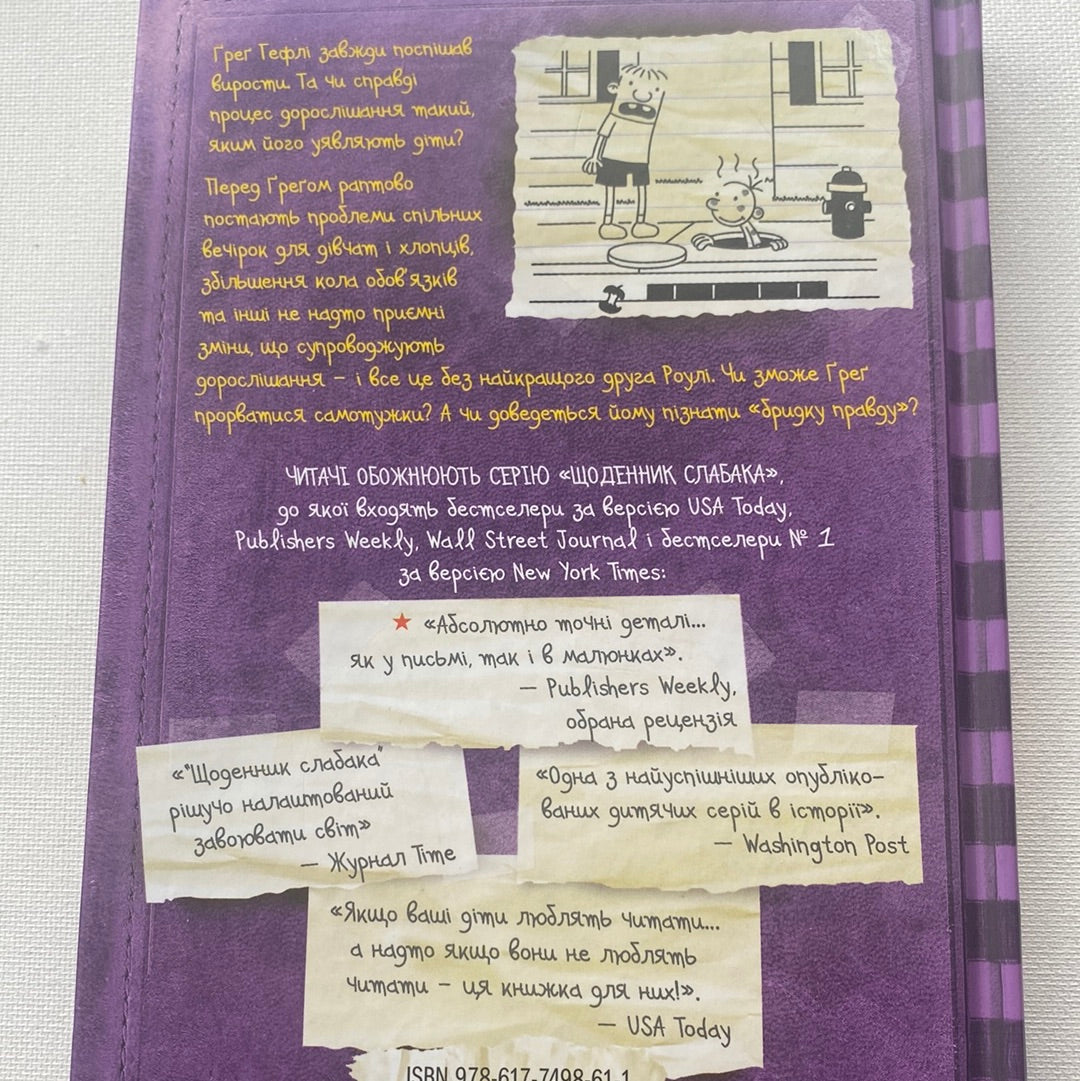 Ґреґ Гефлі завжди поспішав
вирости. Та чи справді
процес дорослішання такий,
яким його уявляють діти?
Перед Ґреґом раптово
постають проблеми спільних
вечірок для дівчат і хлопців,
збільшення кола обов'язків
та інші не надто приємні
зміни, що супроводжують
дорослішання – і все це без найкращого друга Роулі. Чи зможе Ґреґ
прорватися самотужки? А чи доведеться йому пізнати «бридку правду»?
ЧИТАЧІ ОБОЖНЮЮТЬ СЕРІЮ «ЩОДЕННИК СЛАБАКА»,
до якої входять бестселери за версією USA Today,
Publishers Weekly, Wall Street Journal і бестселери № 1
за версією New York Times:
«Абсолютно точні деталі...
як у письмі, так і в малюнках».
– Publishers Weekly,
обрана рецензія
«"Щоденник слабака"
рішучо налаштований
завоювати світ»
– Журнал Time
«Одна з найуспішніших опубліко-
ваних дитячих серій в історії».
– Washington Post
«Якщо ваші діти люблять читати...
а надто якщо вони не люблять
читати – ця книжка для них!».
– USA Today
ISBN 978-617-7498-61-1